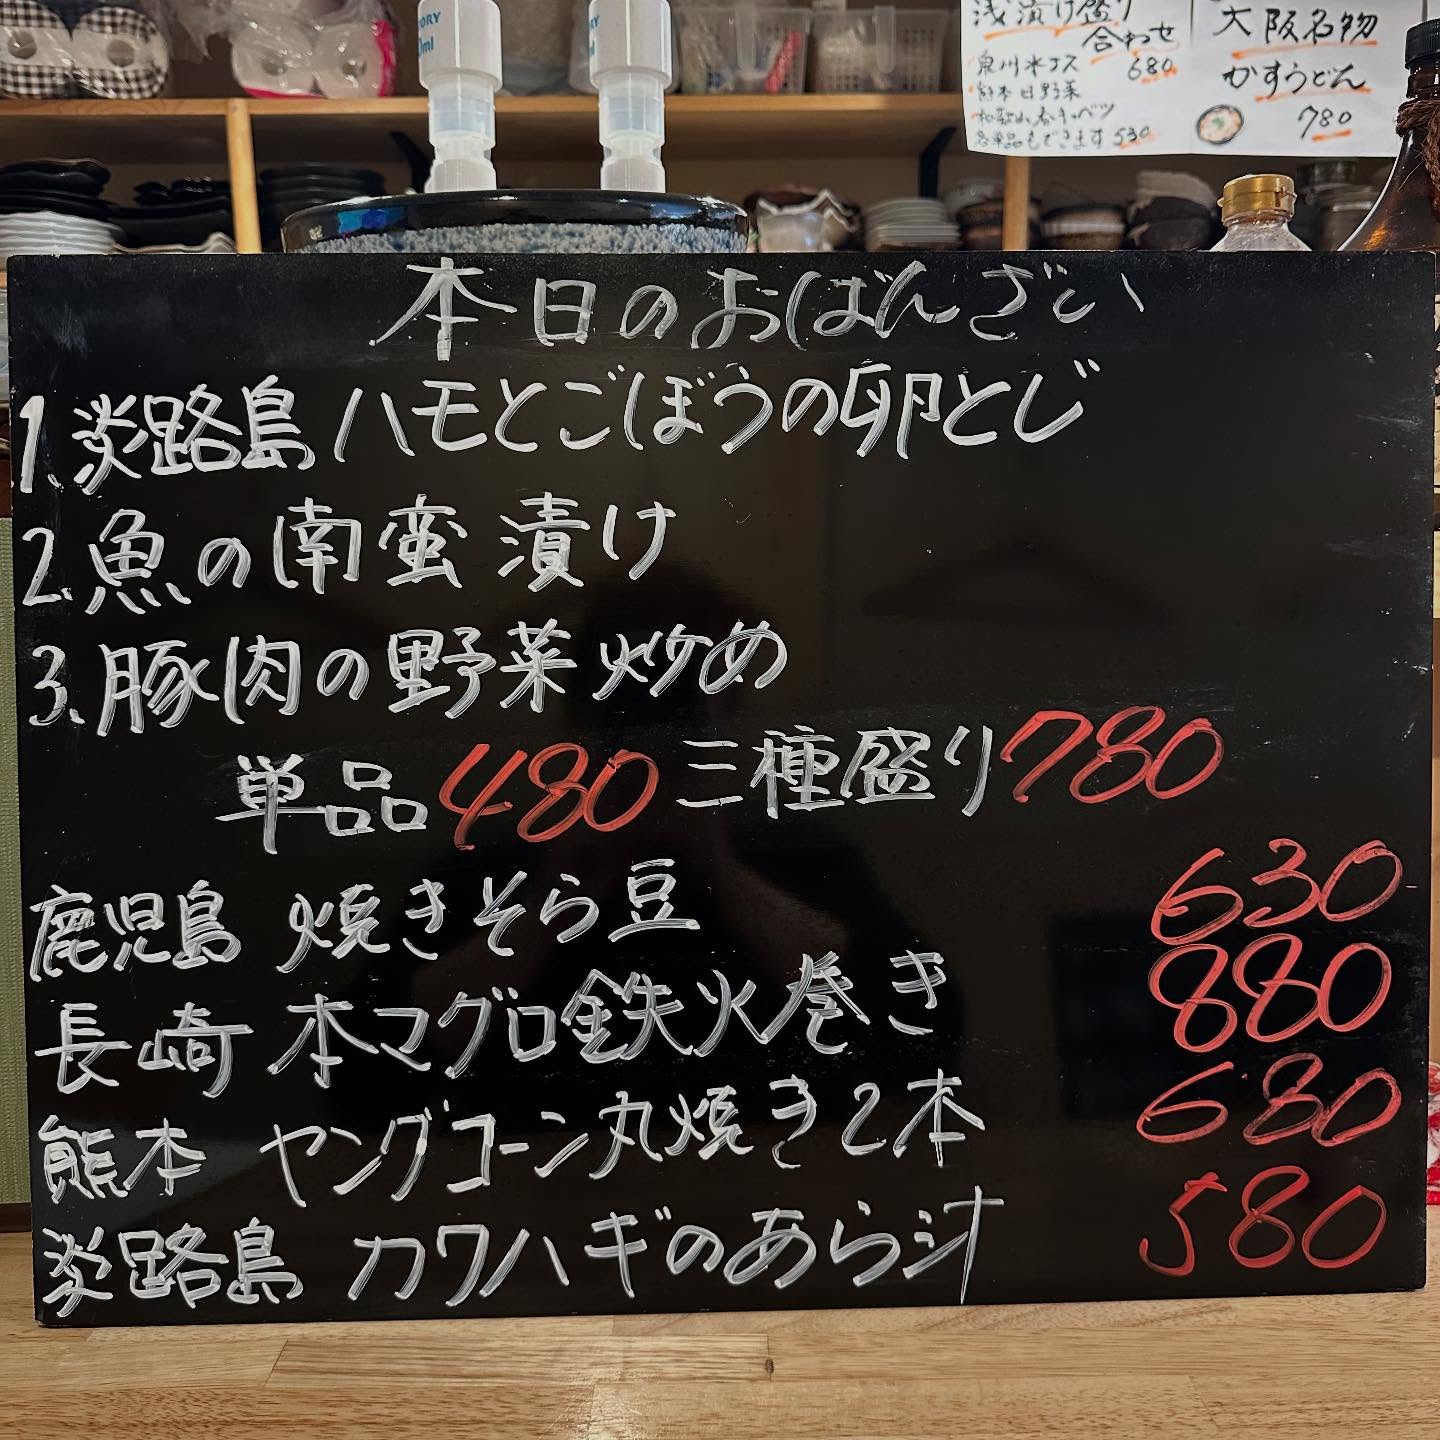 浅漬け盛り
合わせ
泉州水ナス 680
熊本 日野菜
和歌山春キャベツ
各単品もできます 530
大阪名物
かすうどん
780
本日のおばんざい
1.淡路島ハモとごぼうの卵とじ
2.魚の南蛮漬け
3.豚肉の野菜炒め
単品480 三種盛り780
鹿児島 焼きそら豆 630
長崎 本マグロ鉄火巻き 880
熊本 ヤングコーン丸焼き2本 680
淡路島 カワハギのあら汁 580